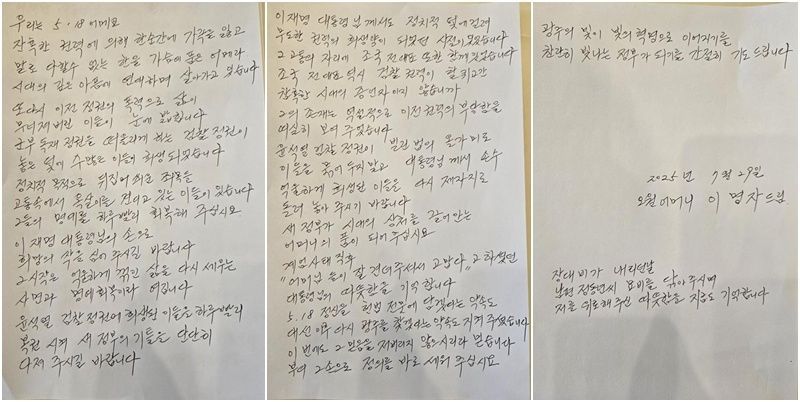 우리는 5·18 어메요
잔혹한 권력에 의해 한순간에 가족을 잃고
말로 다할수 없는 한을 가슴에 품은 어메라
시대의 깊은 아픔에 연대하며 살아가고 있습니다
또다시 이전 정권의 폭력으로 삶이
무너져 버린 이들이 눈에 밟힙니다
군부독재 정권을 떠올리게 하는 검찰 정권이
놓은 덫에 수많은 이들이 희생 되었습니다
정치적 목적으로 뒤집어 씌운 죄목을
고통속에서 옥살이를 견디고 있는 이들이 있습니다
그들의 명예를 하루빨리 회복해 주십시요
이재명 대통령님의 손으로
희망의 작은 심어 주시길 바랍니다
그 시작은 억울하게 꺾인 삶을 다시 세우는
사면과 명예회복이라 여깁니다
윤석열 검찰정권에 희생된 이들을 하루빨리
복권 시켜 새 정부의 기틀을 단단히
다져 주시길 바랍니다
이재명 대통령님께서도 정치적 덫에 걸려
무도한 권력의 희생양이 되었던 시절이 있었습니다
그 고통의 자리에 조국 전대표 또한 함께 있었습니다
조국 전대표 역시 검찰 권력이 할퀴고간
참혹한 시대의 증인자 아닙니까
그의 존재는 역설적으로 이전권력의 부당함을
여실히 보여 주었습니다
윤석열 검찰 정권이 빌린 법의 올가미로
이들을 묶어 두지말고 대통령님께서 손수
억울하게 희생된 이들을 다시 제자리로
돌려 놓아 주시기 바랍니다
새 정부가 시대의 상처를 끌어안는
어머니의 품이 되어 주십시요
계엄사태 직후
"어머님들이 잘 견뎌주셔서 고맙다"고 하셨던
대통령님의 따뜻함을 기억합니다
5.18 정신을 헌법 전문에 담겠다는 약속도
대선 이후 다시 광주를 찾겠다는 약속도 지켜 주셨습니다
이번에도 그 믿음을 저버리지 않으시리라 믿습니다
부디 그 손으로 정의를 바로 세워 주십시요
광주의 빛이 빛의 혁명으로 이어지기를
찬란히 빛나는 정부가 되기를 간절히 기도드립니다
2025년 7월 29일
오월어머니 이명자드림
장대비가 내리던날
남편 정동년씨 묘비를 닦아 주시며
저를 위로해주신 따뜻함을 지금도 기억합니다